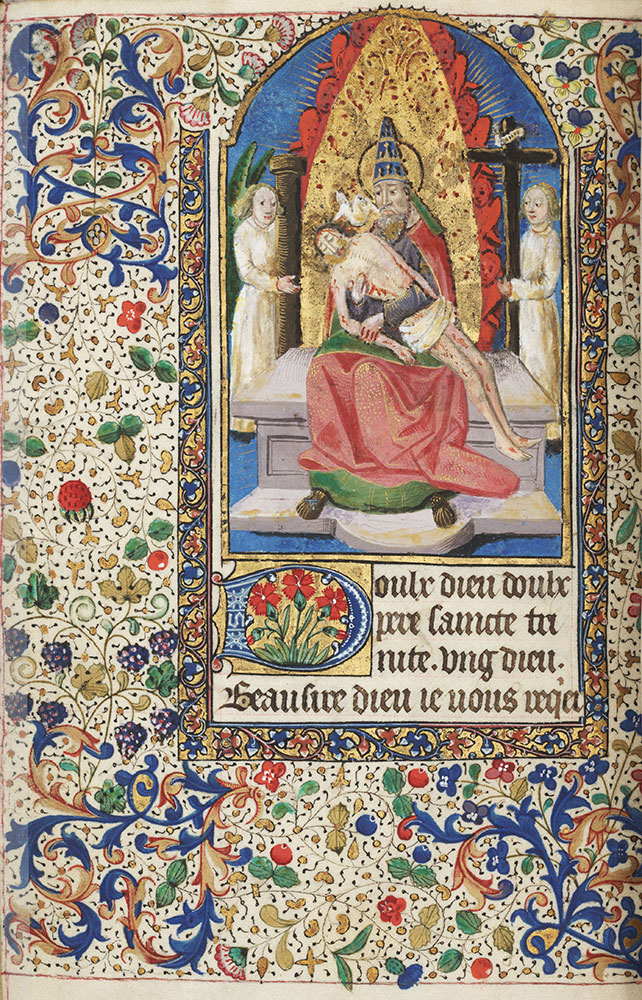 Doulx dieu doulx
pere saincte tri
nite. vng dieu.
Beau sire dieu ie vous req'er